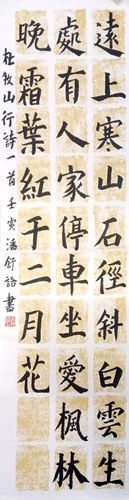 遠上寒山石徑斜白雲生
處有人家停車坐愛楓林
晚霜葉紅于二月花
杜牧山行詩一首壬寅潘舒書